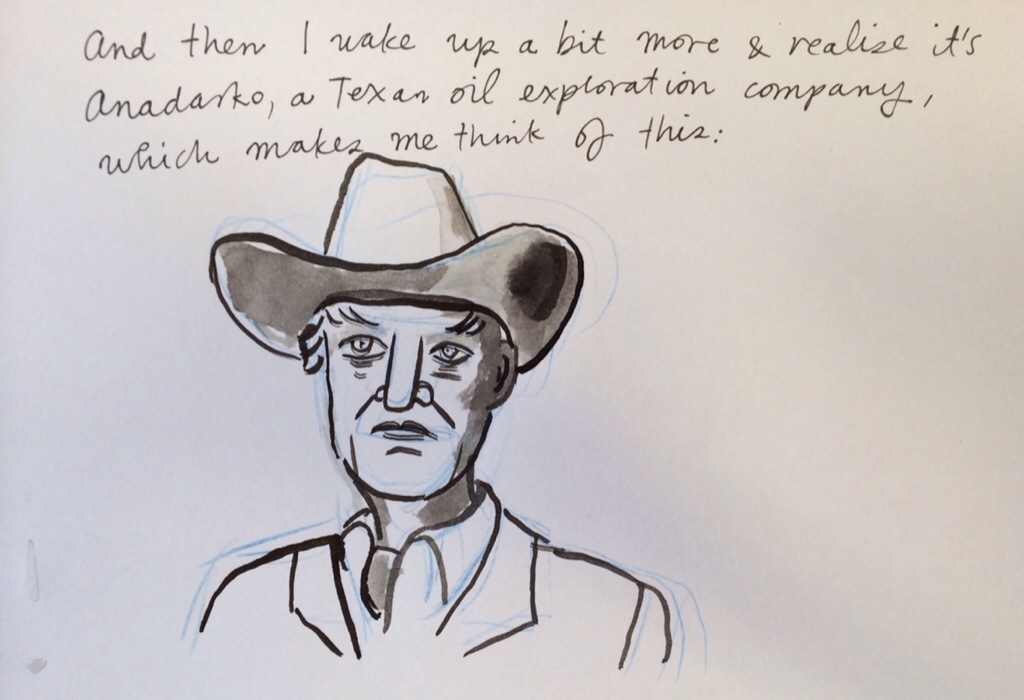 And then I wake up a bit more & realise it's
Anadarko, a Texan oil exploration company,
which makes me think of this: